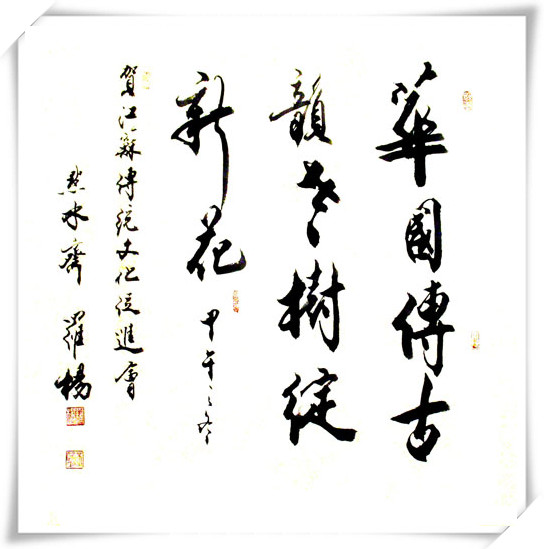 華國傳古
韻老樹綻
新花 甲午之冬
賀江蘇傳統文化促進會
墨水齋 羅楊